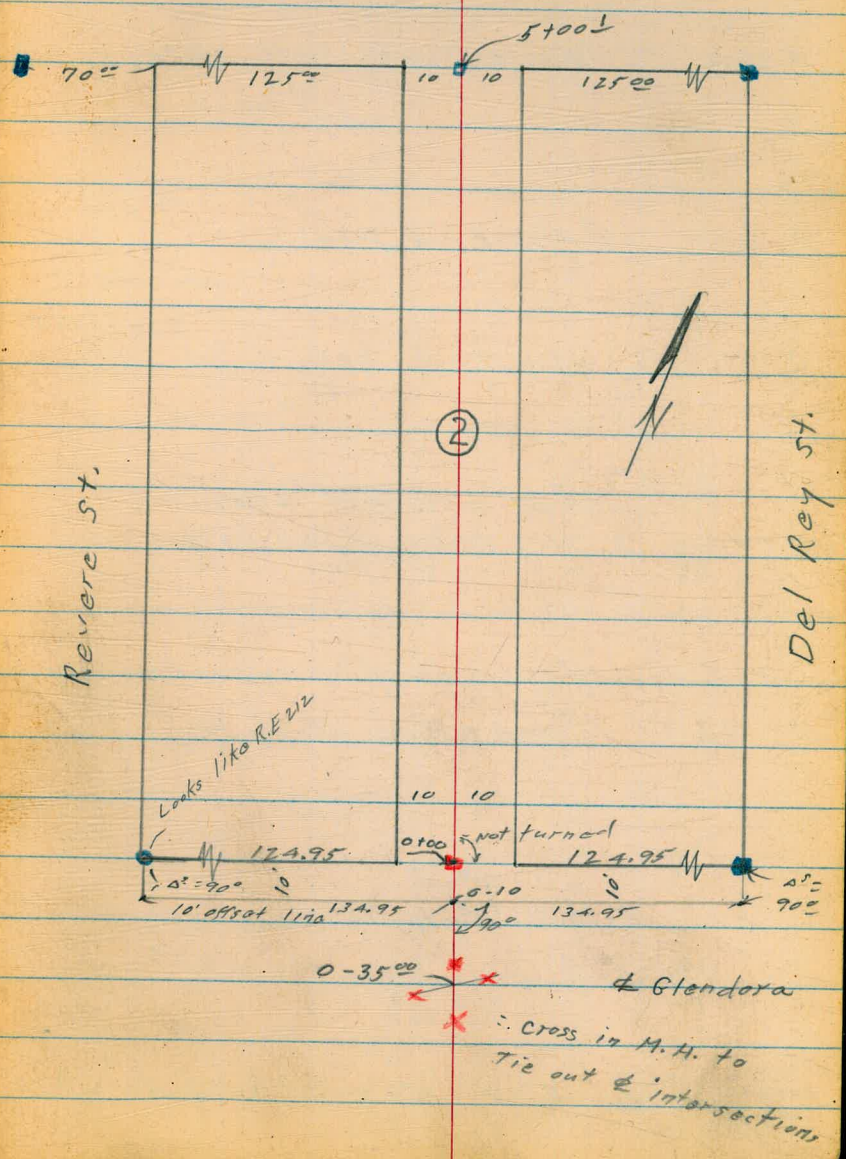 5+00 1
70 00
125 00
10
10
125 00
2
N
Revere St.
Del Rey St.
Looks like R.E 212
10
10
0+00
Not turned
124.95
124.95
10'
10'
∆s = 90°
0-10
∆s = 90°
10' offset line
134.95
90°
134.95
0-35 00
℄ Glendora
∴ Cross in M.H. to
Tie out ℄ intersections